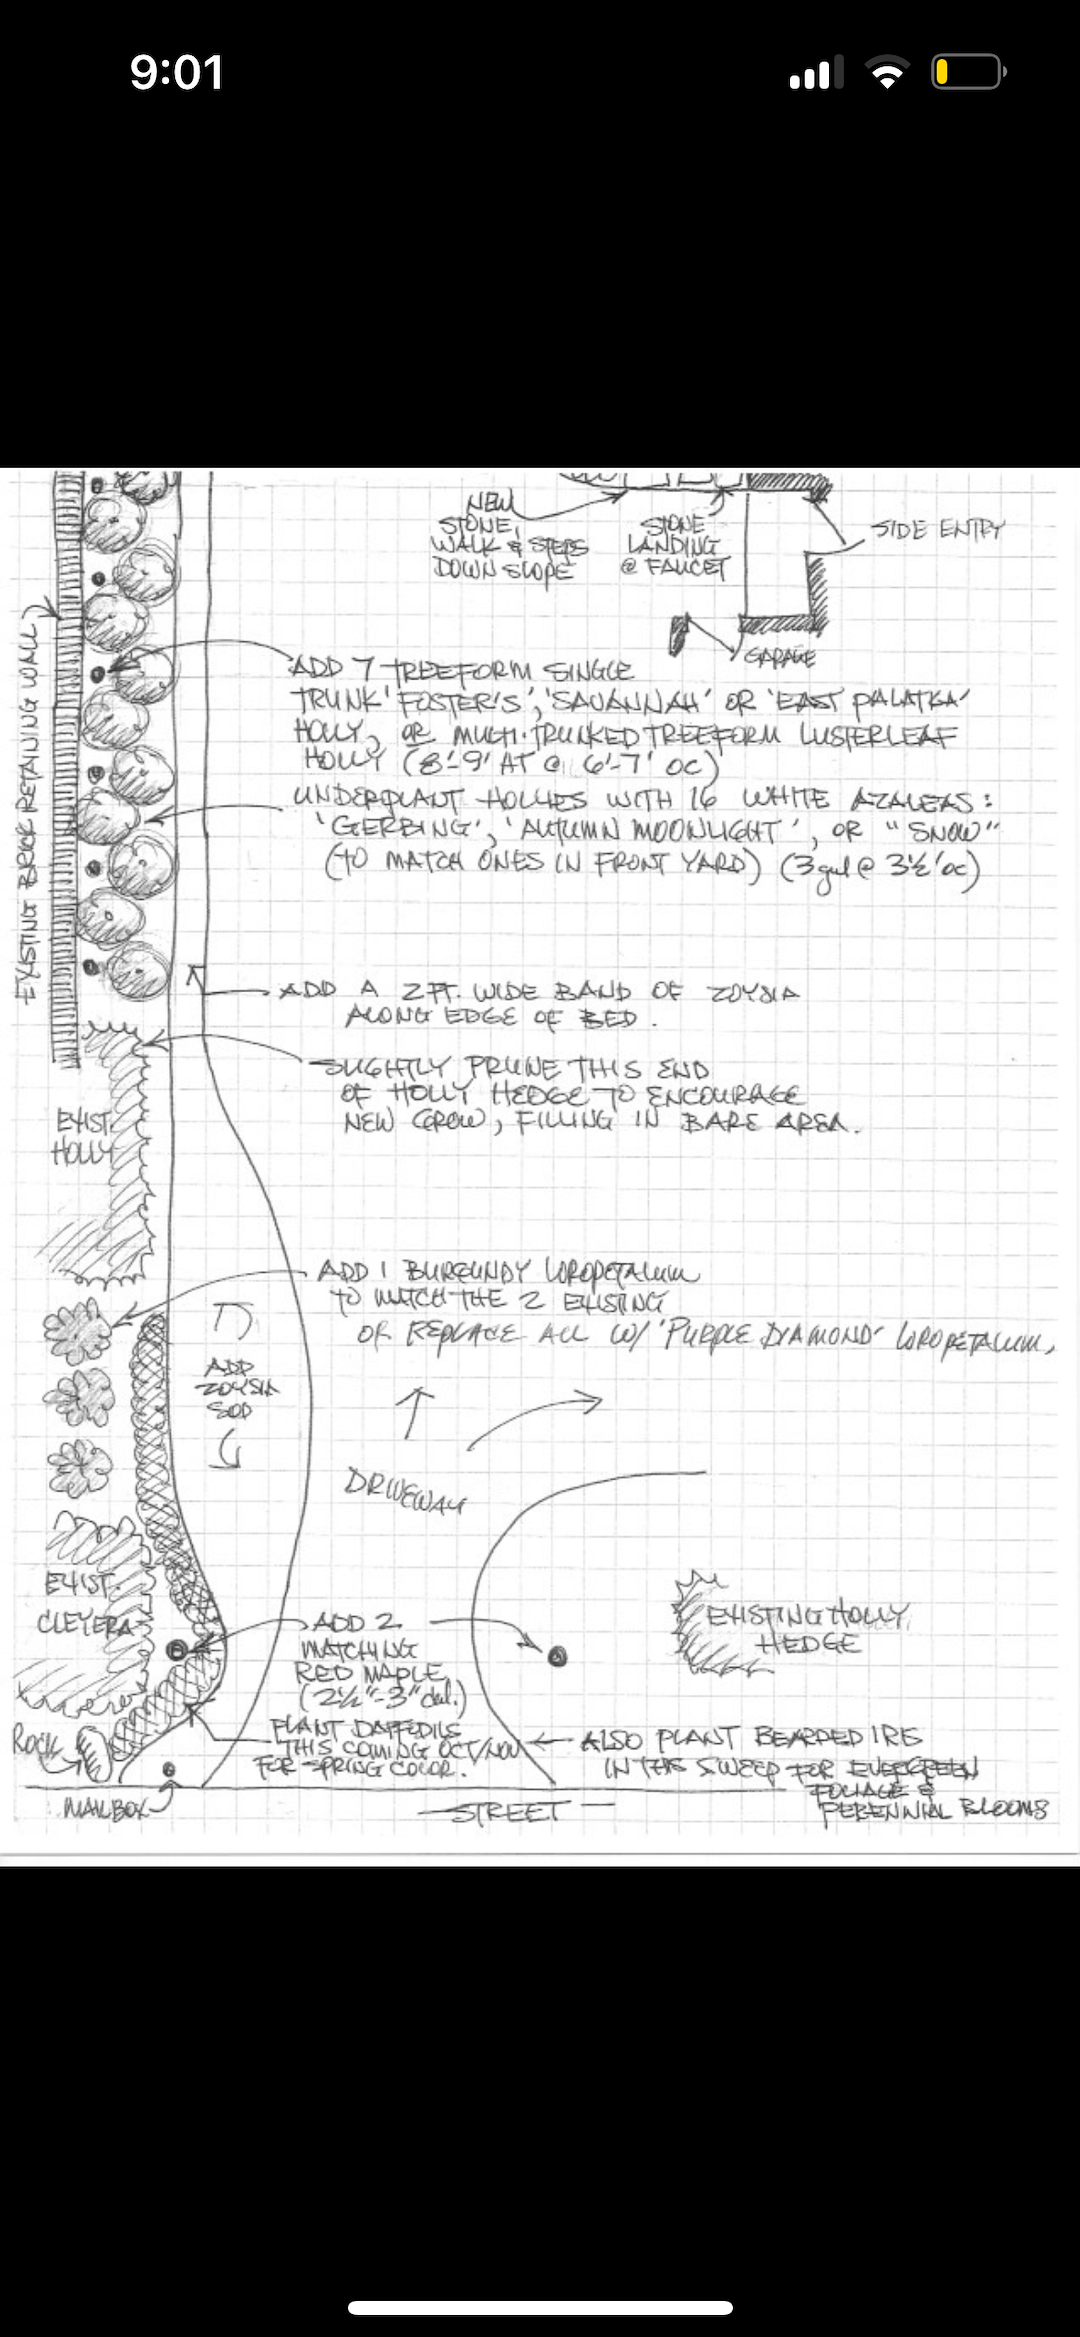 9:01
NEW
STONE
WALK & STEPS
DOWN SLOPE
STONE
LANDING
@ FAUCET
SIDE ENTRY
GARAGE
EXISTING BRICK RETAINING WALL
ADD 7 TREEFORM SINGLE
TRUNK 'FOSTER'S', 'SAVANNAH' OR 'EAST PALATKA'
HOLLY, OR MULTI-TRUNKED TREEFORM LUSTERLEAF
HOLLY (8'-9' AT @ 6'-7' OC)
UNDERPLANT HOLLIES WITH 16 WHITE AZALEAS:
'GERBING', 'AUTUMN MOONLIGHT', OR "SNOW"
(TO MATCH ONES IN FRONT YARD) (3 gal @ 3½' oc)
ADD A 2 FT. WIDE BAND OF ZOYSIA
ALONG EDGE OF BED.
SLIGHTLY PRUNE THIS END
OF HOLLY HEDGE TO ENCOURAGE
NEW GROW, FILLING IN BARE AREA.
EXIST.
HOLLY
ADD 1 BURGUNDY LOROPETALUM
TO MATCH THE 2 EXISTING
OR REPLACE ALL W/ 'PURPLE DIAMOND' LOROPETALUM.
ADD
ZOYSIA
SOD
DRIVEWAY
EXIST.
CLEYERA
ADD 2
MATCHING
RED MAPLE
(2½"-3" cal.)
EXISTING HOLLY
HEDGE
PLANT DAFFODILS
THIS COMING OCT/NOV
FOR SPRING COLOR.
ALSO PLANT BEARDED IRIS
IN THIS SWEEP FOR EVERGREEN
FOLIAGE &
PERENNIAL BLOOMS
ROCK
MAILBOX
STREET